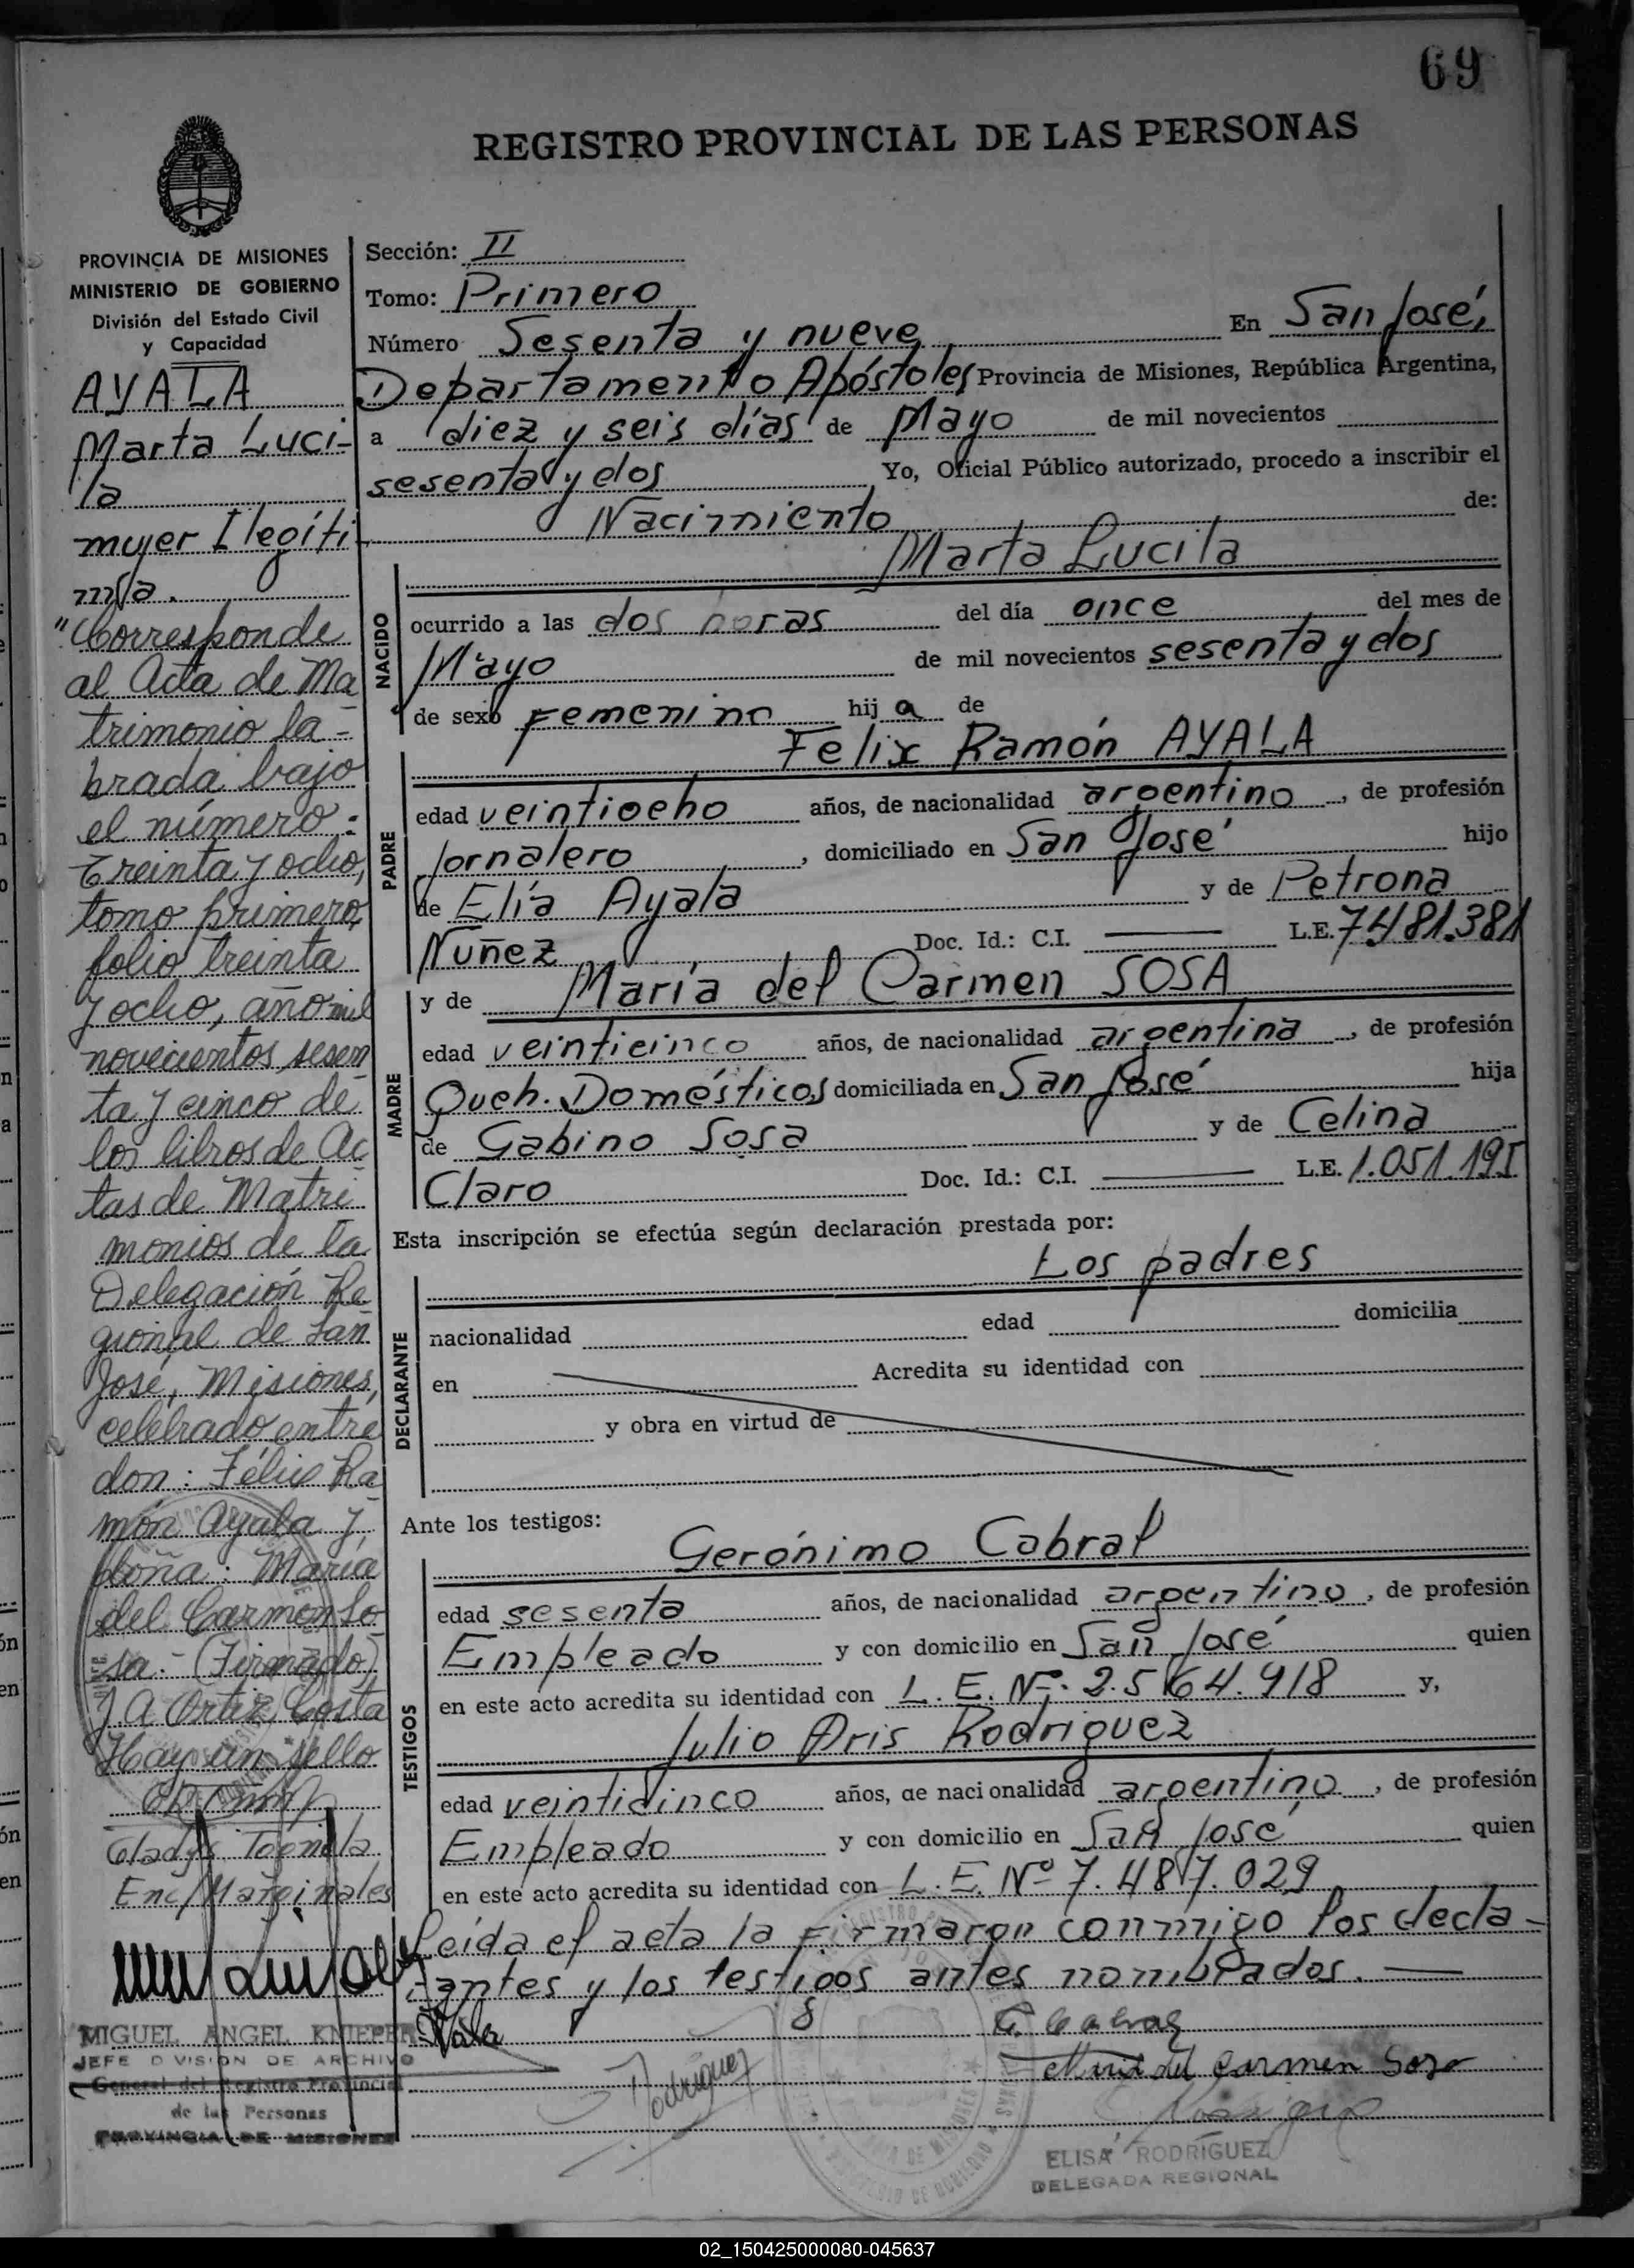 69
REGISTRO PROVINCIAL DE LAS PERSONAS
PROVINCIA DE MISIONES
MINISTERIO DE GOBIERNO
División del Estado Civil
y Capacidad
AYALA
Marta Luci-
la
mujer Ilegíti-
ma.
"Corresponde
al Acta de Ma
trimonio la-
brada bajo
el número:
treinta y ocho,
tomo primero,
folio treinta
y ocho, año mil
novecientos sesen
ta y cinco de
los libros de Ac
tas de Matri
monios de la
Delegación Re
gional de San
José, Misiones,
celebrado entre
don: Félix Ra
món Ayala y
doña: María
del Carmen So
sa.- (Firmado)
J A Ortiz Costa
Hay un sello
Gladys
Enc/Marginales
MIGUEL ANGEL KNIEPER
JEFE DIVISION DE ARCHIVO
General del Registro Provincial
de las Personas
PROVINCIA DE MISIONES
Sección: II
Tomo: Primero
Número Sesenta y nueve En San José,
Departamento Apóstoles Provincia de Misiones, República Argentina,
a diez y seis días de Mayo de mil novecientos
sesenta y dos Yo, Oficial Público autorizado, procedo a inscribir el
Nacimiento de:
Marta Lucila
NACIDO
ocurrido a las dos horas del día once del mes de
Mayo de mil novecientos sesenta y dos
de sexo Femenino hija de
Felix Ramón AYALA
PADRE
edad veintiocho años, de nacionalidad argentino, de profesión
Jornalero, domiciliado en San José hijo
de Elía Ayala y de Petrona
Nuñez Doc. Id.: C.I. L.E. 7.481.381
y de María del Carmen SOSA
MADRE
edad veinticinco años, de nacionalidad argentina, de profesión
Queh. Domésticos domiciliada en San José hija
de Gabino Sosa y de Celina
Claro Doc. Id.: C.I. L.E. 1.051.195
Esta inscripción se efectúa según declaración prestada por:
Los padres
DECLARANTE
nacionalidad edad domicilia
en Acredita su identidad con
y obra en virtud de
Ante los testigos:
Gerónimo Cabral
TESTIGOS
edad sesenta años, de nacionalidad argentino, de profesión
Empleado y con domicilio en San José quien
en este acto acredita su identidad con L.E. Nº 2.564.918 y,
Julio Aris Rodriguez
edad veinticinco años, de nacionalidad argentino, de profesión
Empleado y con domicilio en San José quien
en este acto acredita su identidad con L.E. Nº 7.487.029
Leída el acta la firmaron conmigo los decla-
rantes y los testigos antes nombrados.
G. Cabral
Maria del Carmen Sosa
Rodriguez
ELISA RODRÍGUEZ
DELEGADA REGIONAL
02_150425000080-045637